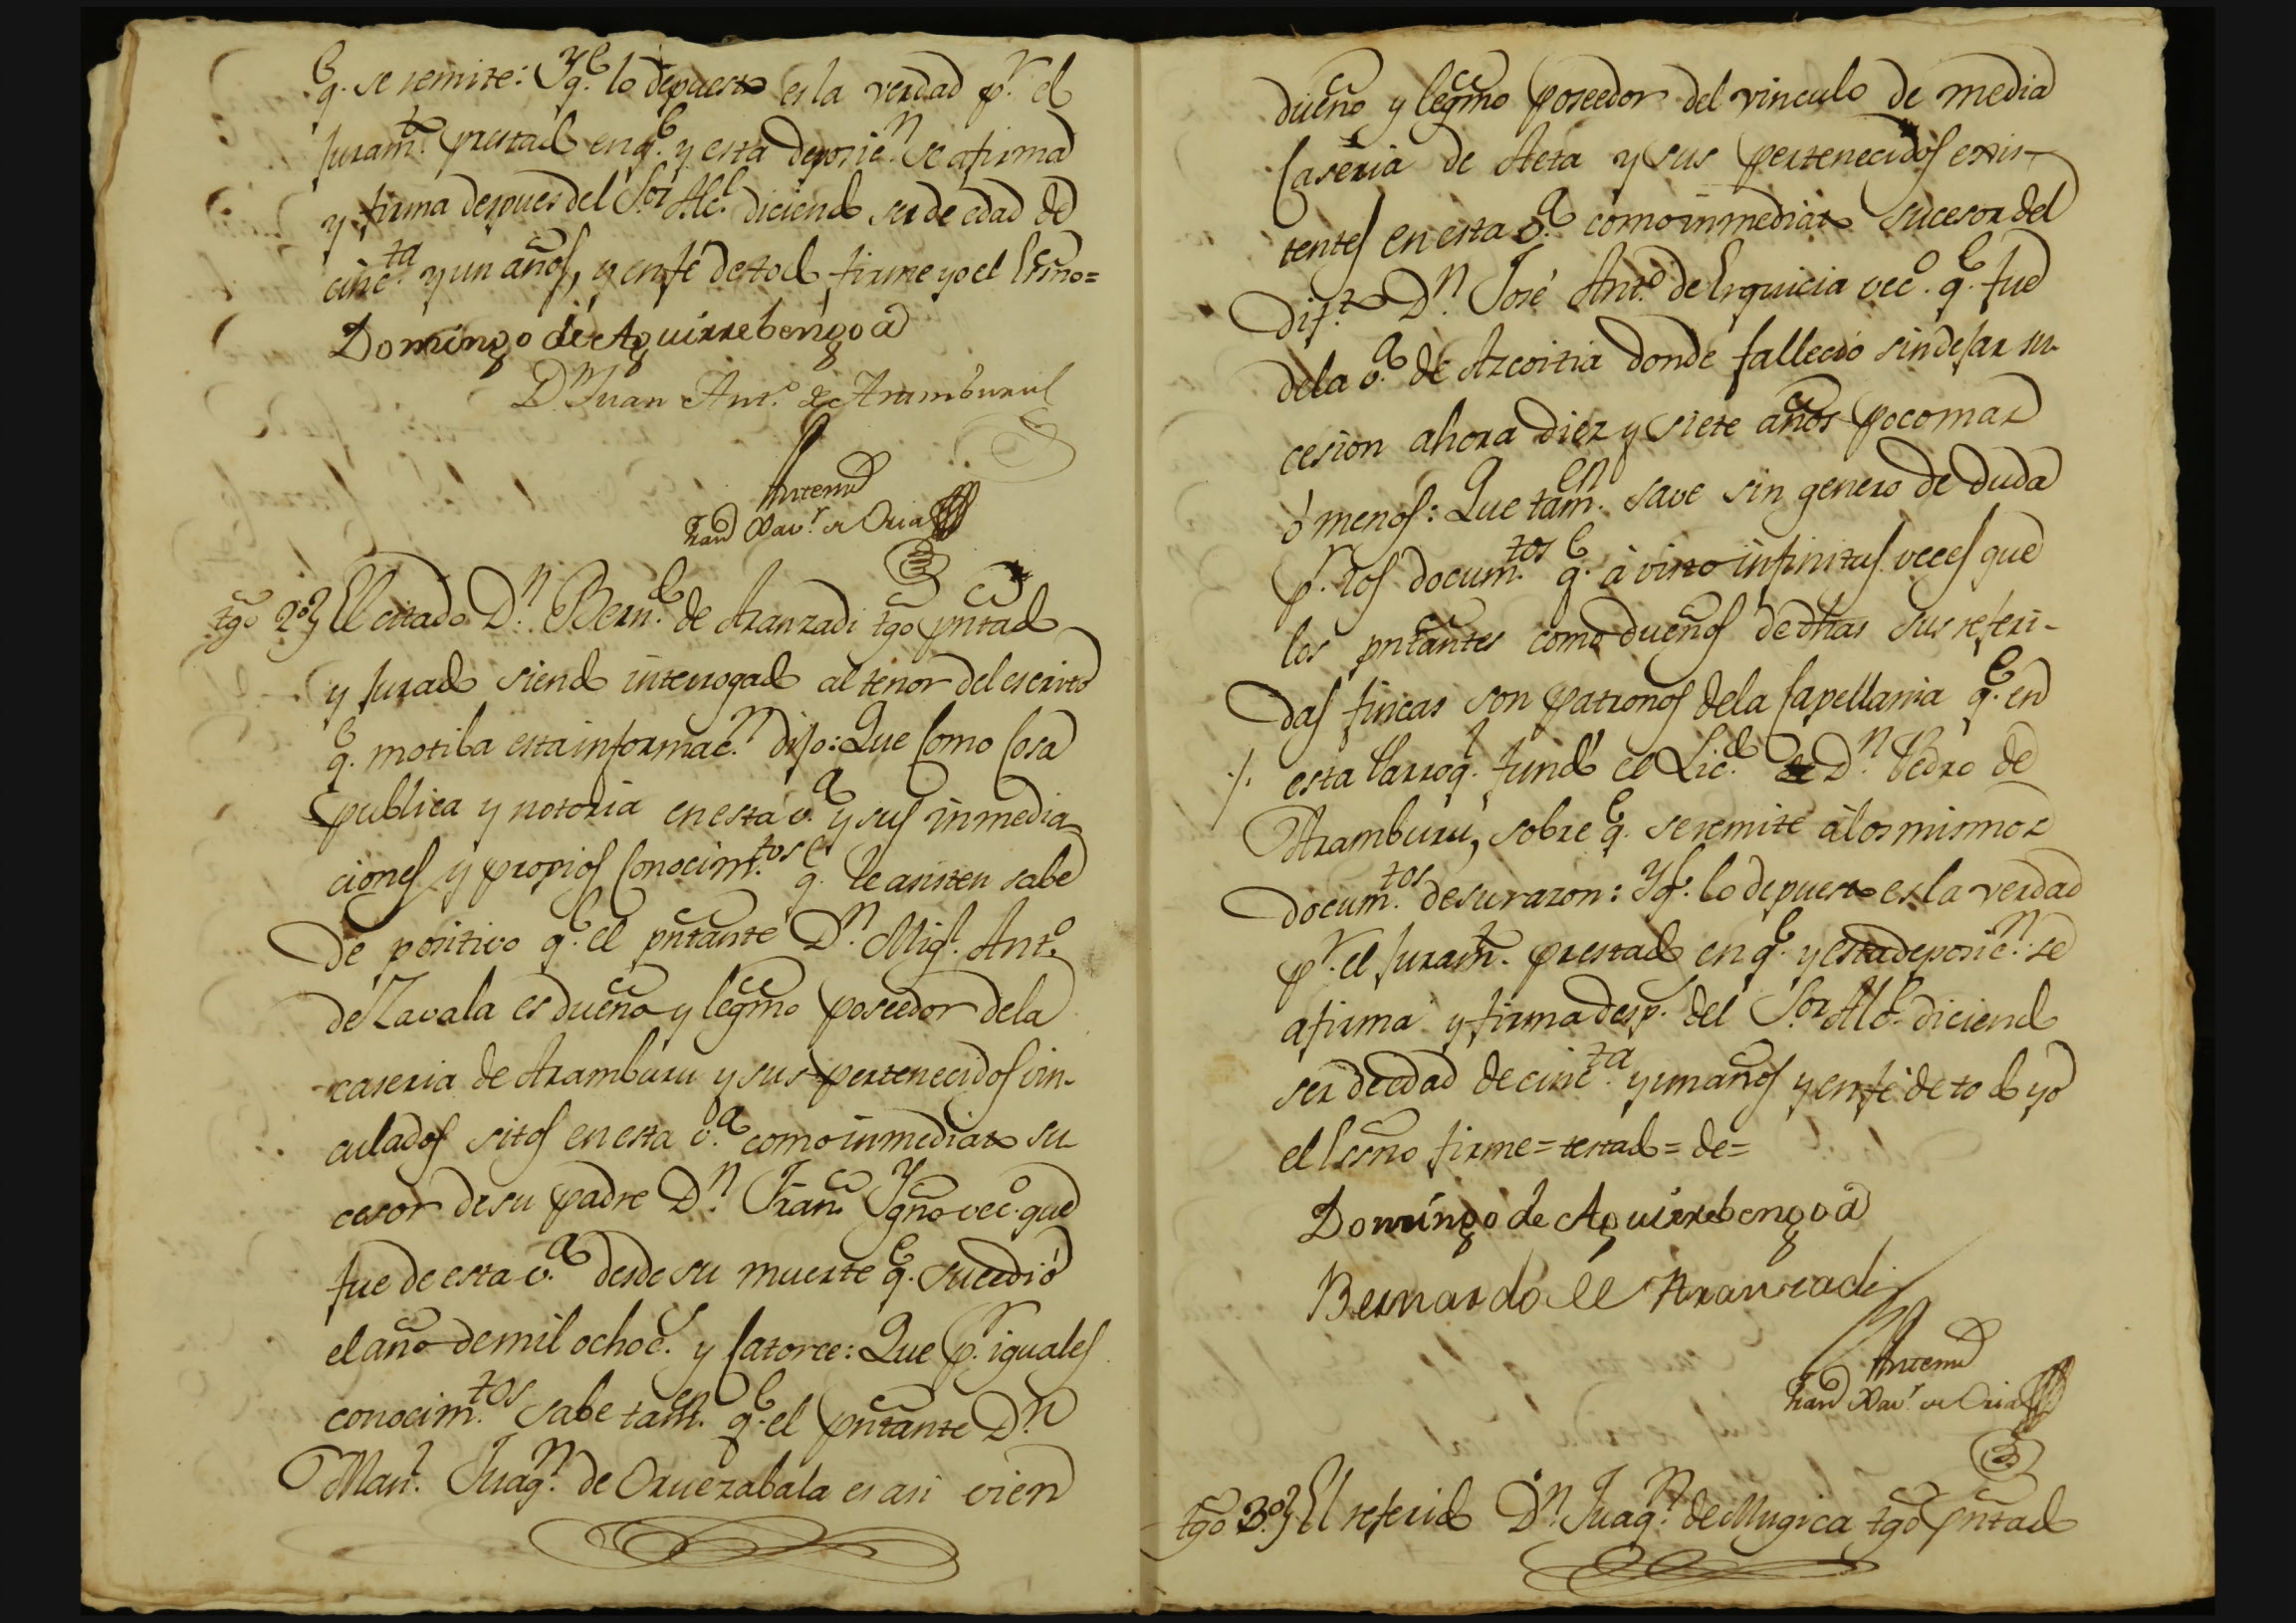 q.e se remite: Y q.e lo depuesto es la verdad p.r el
juram.to prestado en q.e y esta deposic.n se afirma
y firma despues del S.or Alc.e diciendo ser de edad de
cinc.ta y un años, y en fé de todo firme yo el Essño=
Domingo de Aguirrebengoa
D.n Juan Ant.o de Aramburu
Antemi
Xav.r de Oria
tgõ 2.o} El citado D.n Bern.do de Aranzadi tgõ pñtado
y jurado siendo interrogado al tenor del escrito
q.e motiba esta informac.n dijo: Que como cosa
publica y notoria en esta v.a y sus inmedia-
ciones y propios conocim.tos q.e le asisten sabe
de positivo q.e el pñtante D.n Mig.l Ant.o
de Zavala es dueño y legmõ poseedor dela
caseria de Aramburu y sus pertenecidos vin-
culados sitos en esta v.a como inmediato su-
cesor de su padre D.n Fran.co Ygño vec.o que
fue de esta v.a desde su muerte q.e sucedió
el año de mil ochoc.s y catorce: Que p.r iguales
conocim.tos sabe tam.en q.e el pñtante D.n
Man.l Juaq.n de Oruezabala es asi vien
dueño y legmõ poseedor del vinculo de media
caseria de Aeta y sus pertenecidos exis-
tentes en esta v.a como inmediato sucesor del
dif.to D.n José Ant.o de Erquicia vec.o q.e fue
dela v.a de Azcoitia donde fallecio sin dejar su-
cesion ahora diez y siete años poco mas
ó menos: Que tam.en save sin genero de duda
p.r los docum.tos q.e à visto infinitas veces que
los pñtantes como dueños de dhas sus referi-
das fincas son patronos dela capellania q.e en
esta Parroq.l fundó el Lic.do de D.n Pedro de
Aramburu, sobre q.e se remite à los mismos
docum.tos de su razon: Y q.e lo depuesto es la verdad
p.r el juram.to prestado en q.e y esta deposic.n se
afirma y firma desp.s del S.or Alc.e diciendo
ser de edad de cinc.ta y un años y en fé de todo yo
el Essño firme=testado=de=
Domingo de Aguirrebengoa
Bernardo de Aranzadi
Antemi
Xav.r de Oria
tgõ 3.o} El referido D.n Juaq.n de Mugica tgõ pñtado